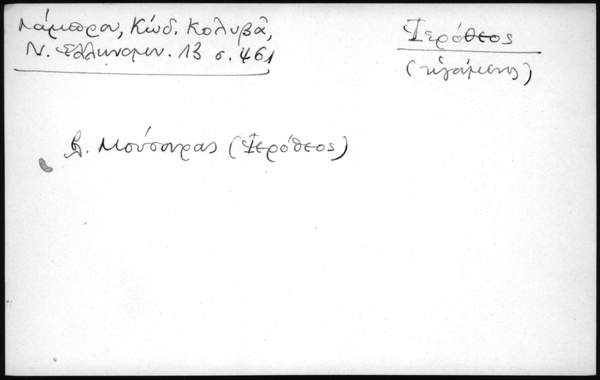 Λάμπρου, Κώδ. Κολυβᾶ,
Ν. Ἑλληνομν. 13 σ. 461
Ἱερόθεος
(ἡγούμενος)
β. Μούσουρας (Ἱερόθεος)